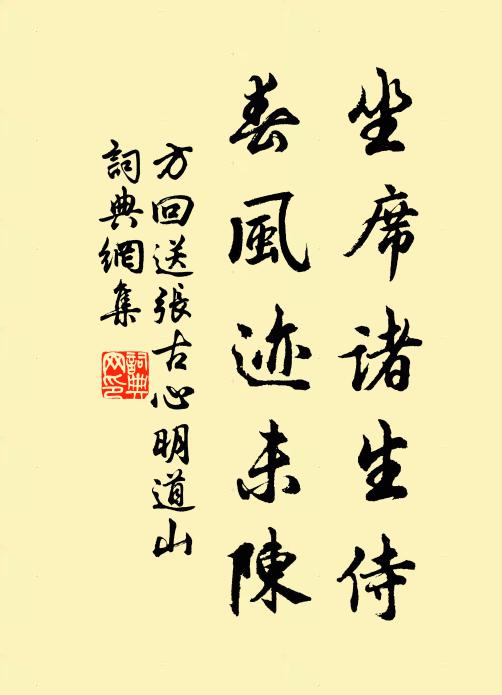 坐席诸生侍
春風迹未陳
方回送張古心明道山
詞典網集
詞典网印